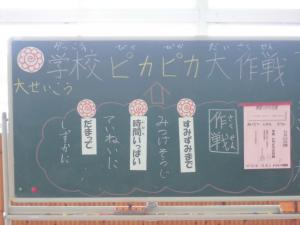 がっこう だい さくせん
学校ピカピカ大作戦
大せいこう
さくせん
作戦
すみずみまで
みつけそうじ
じかん
時間いっぱい
ていねいに
だまって
しずかに